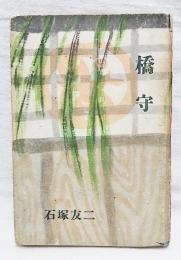 橋守
石塚友二